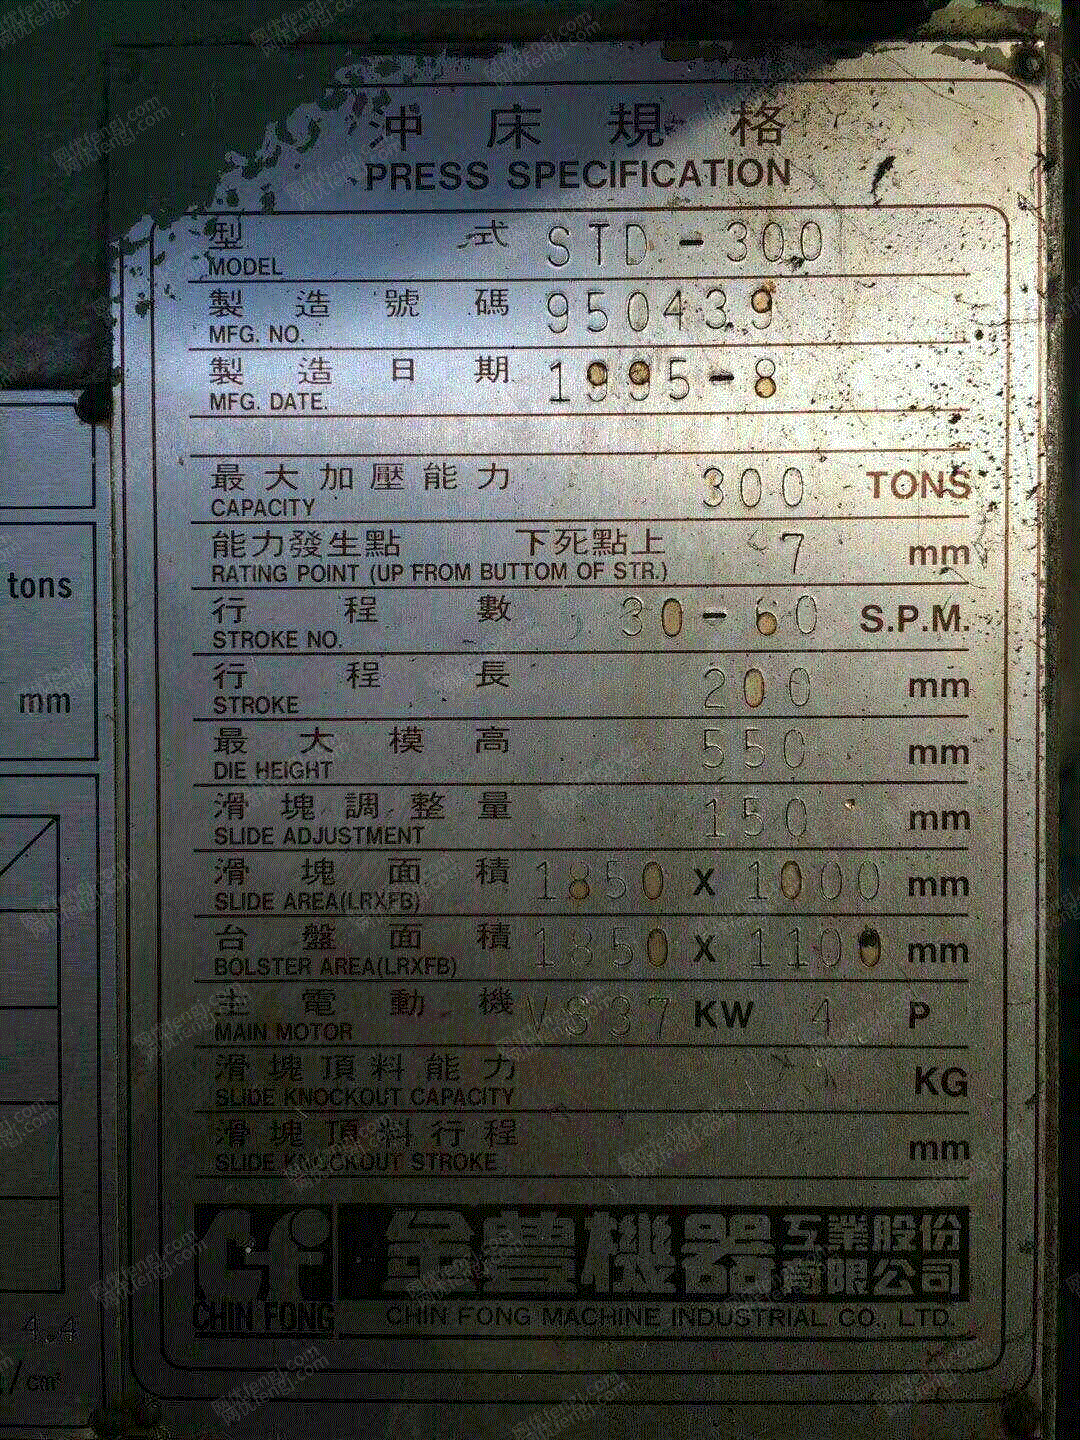 沖床規格
PRESS SPECIFICATION
型式 STD-300
MODEL
製造號碼 950439
MFG. NO.
製造日期 1995-8
MFG. DATE.
最大加壓能力 300 TONS
CAPACITY
能力發生點 下死點上 7 mm
RATING POINT (UP FROM BUTTOM OF STR.)
行程數 30-60 S.P.M.
STROKE NO.
行程長 200 mm
STROKE
最大模高 550 mm
DIE HEIGHT
滑塊調整量 150 mm
SLIDE ADJUSTMENT
滑塊面積 1850 X 1000 mm
SLIDE AREA(LRXFB)
台盤面積 1850 X 1100 mm
BOLSTER AREA(LRXFB)
主電動機 VS37 KW 4 P
MAIN MOTOR
滑塊頂料能力 KG
SLIDE KNOCKOUT CAPACITY
滑塊頂料行程 mm
SLIDE KNOCKOUT STROKE
金豐機器工業股份有限公司
CHIN FONG
CHIN FONG MACHINE INDUSTRIAL CO., LTD.
tons
mm
4.4
/cm²